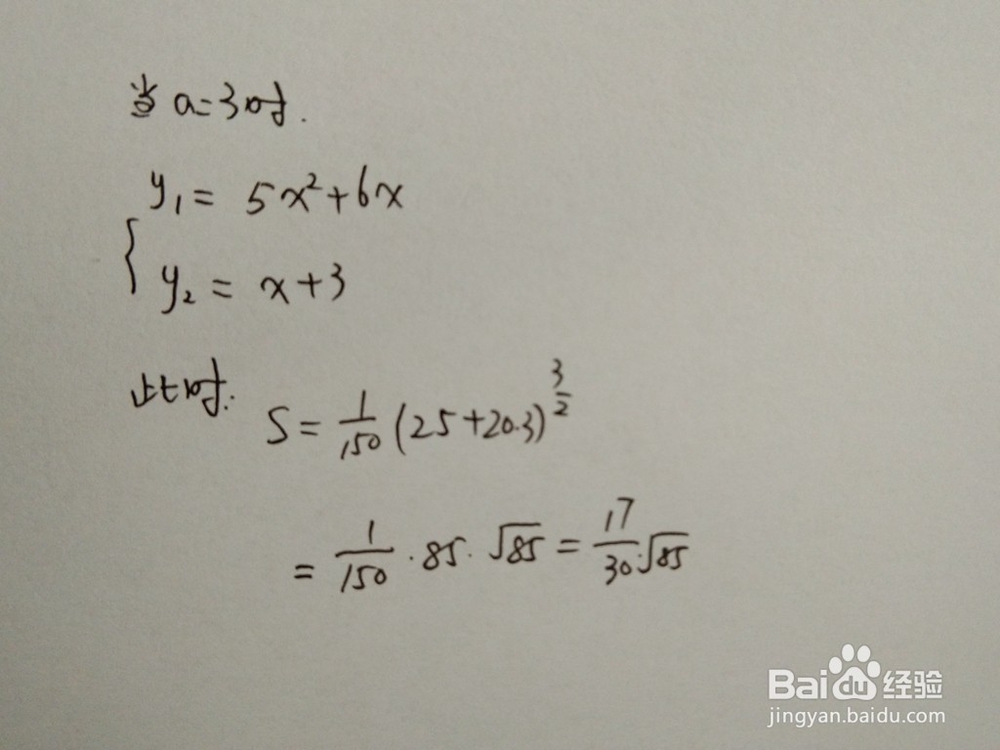 当 a=3时.
y₁ = 5x²+6x
{
y₂ = x+3
此时: S = 1/150 (25+20·3)^(3/2)
= 1/150 · 85 · √85 = 17/30 · √85
Baidu 经验
jingyan.baidu.com